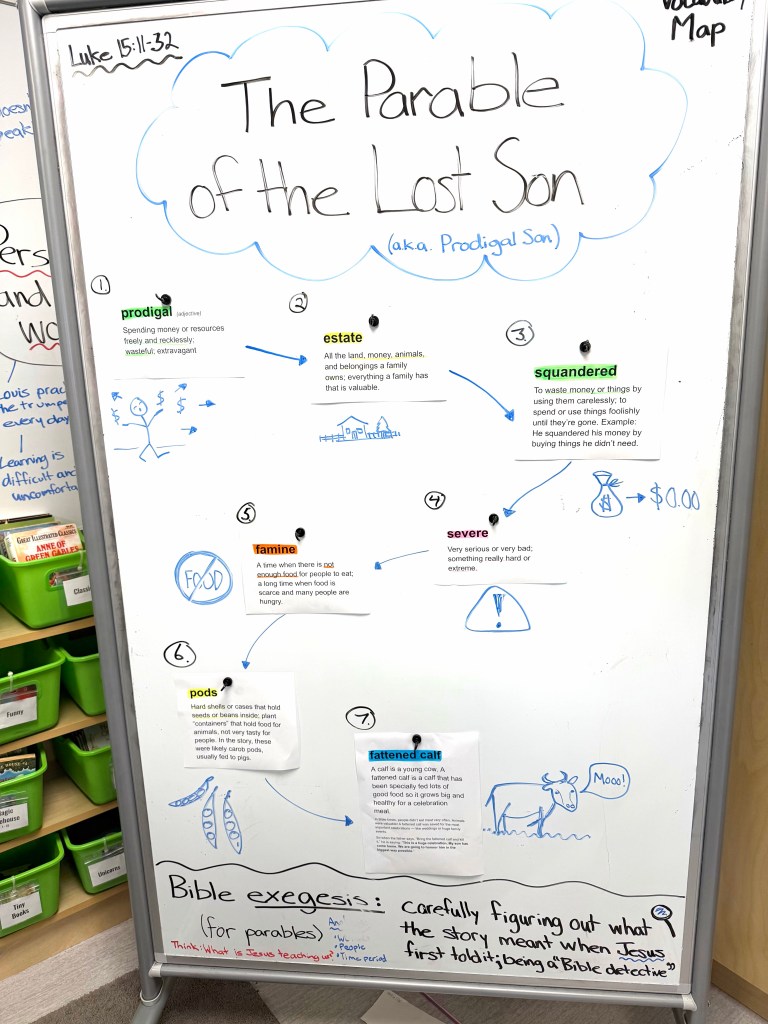 Luke 15:11-32
Map
The Parable
of the Lost Son
(a.k.a. Prodigal Son)
1.
prodigal (adjective)
Spending money or resources
freely and recklessly;
wasteful; extravagant
$ $ $
2
estate
All the land, money, animals,
and belongings a family
owns; everything a family has
that is valuable.
3.
squandered
To waste money or things by
using them carelessly; to
spend or use things foolishly
until they're gone. Example:
He squandered his money by
buying things he didn't need.
$ → $0.00
4
severe
Very serious or very bad;
something really hard or
extreme.
!
5.
famine
A time when there is not
enough food for people to eat;
a long time when food is
scarce and many people are
hungry.
FOOD
6.
pods
Hard shells or cases that hold
seeds or beans inside; plant
"containers" that hold food for
animals, not very tasty for
people. In the story, these
were likely carob pods,
usually fed to pigs.
7.
fattened calf
A calf is a young cow. A
fattened calf is a calf that has
been specially fed lots of
good food so it grows big and
healthy for a celebration
meal.
Mooo!
Bible exegesis:
(for parables)
Think: What is Jesus teaching us?
• People
• Time period
carefully figuring out what
the story meant when Jesus
first told it; being a "Bible detective"
and
every day
Learning is
difficult and
GREAT ILLUSTRATED CLASSICS
ANNE OF
GREEN GABLES
Funny
Unicorns
Tiny
Books